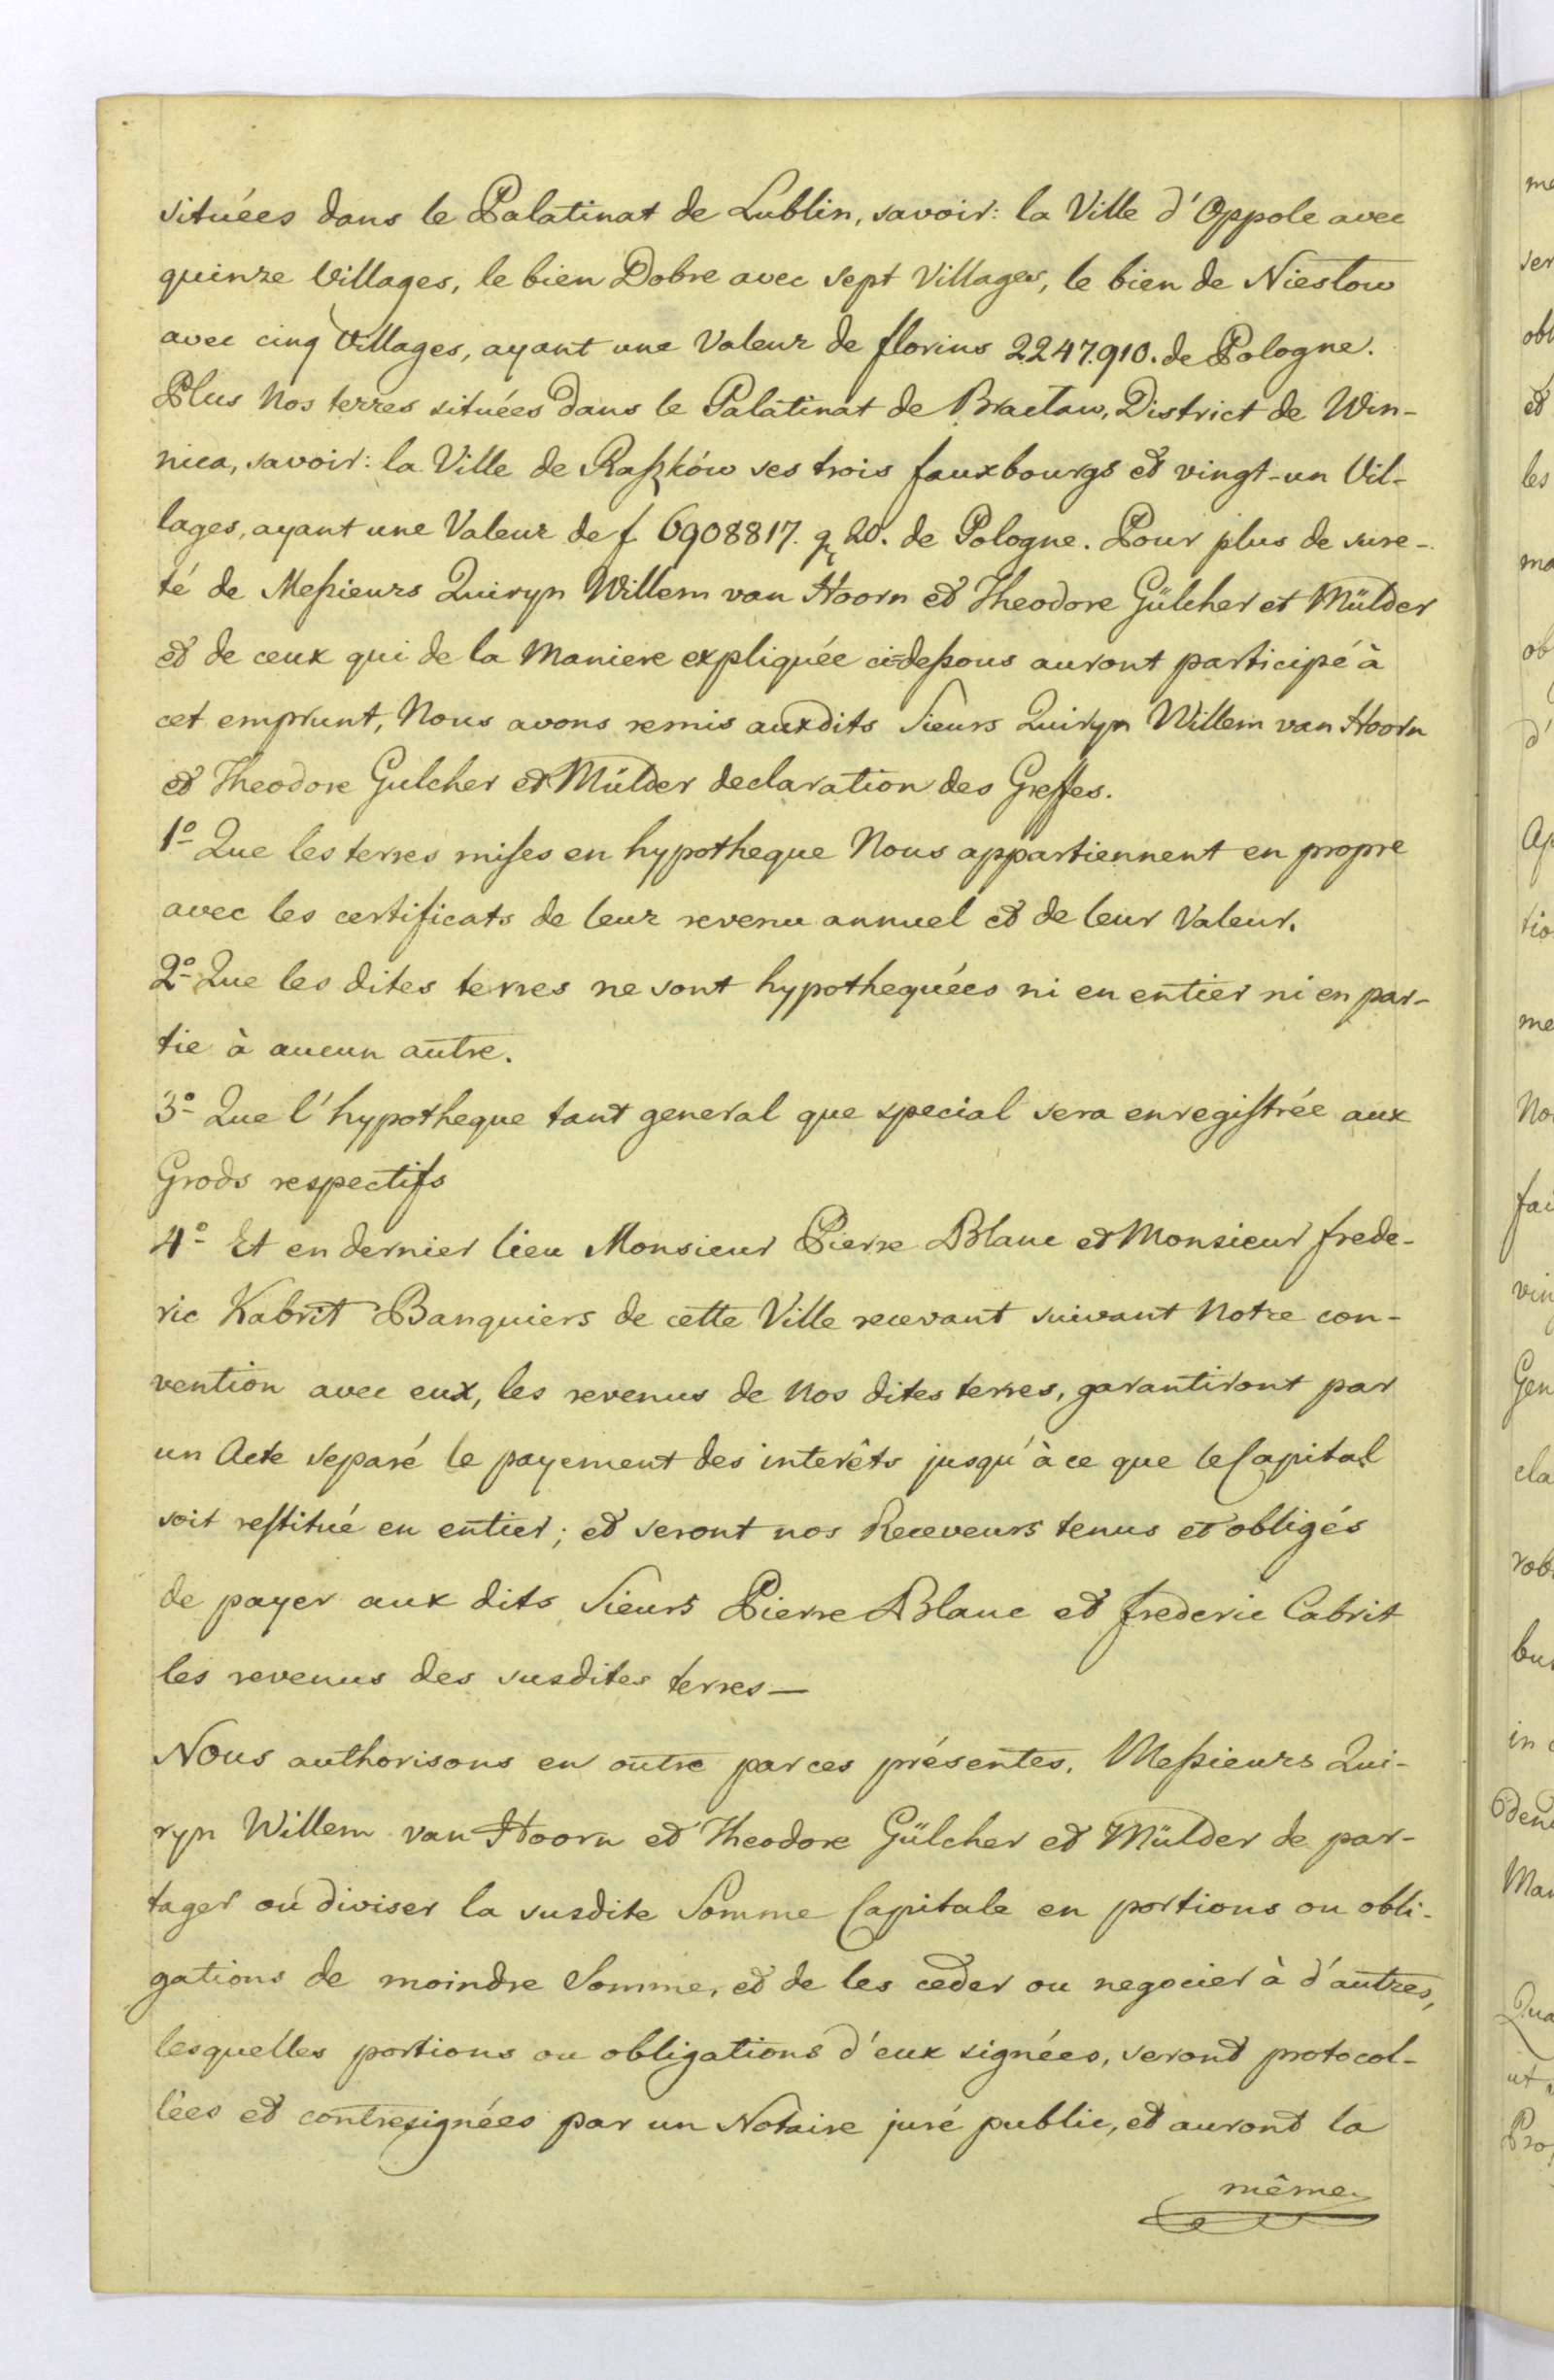 situées dans le Palatinat de Lublin, savoir: la Ville d'Oppole avec
quinze Villages, le bien Dobre avec sept Villages, le bien de Niesłow
avec cinq Villages, ayant une Valeur de florins 2247.910. de Pologne.
Plus Nos terres situées dans le Palatinat de Bracław, District de Win-
nica, savoir: la Ville de Raszków ses trois fauxbourgs et vingt-un Vil-
lages, ayant une Valeur de f 6908817. g 20. de Pologne. Pour plus de sure-
té de Messieurs Quiryn Willem van Hoorn et Theodore Gülcher et Mülder
et de ceux qui de la Maniere expliquée ci=dessous auront participé à
cet emprunt, Nous avons remis auxdits Sieurs Quiryn Willem van Hoorn
et Theodore Gulcher et Mülder declaration des Greffes.
1º Que les terres mises en hypotheque Nous appartiennent en propre
avec les certificats de leur revenu annuel et de leur Valeur.
2º Que les dites terres ne sont hypothequées ni en entier ni en par-
tie à aucun autre.
3º Que l'hypotheque tant general que special sera enregistrée aux
Grods respectifs
4º Et en dernier lieu Monsieur Pierre Blanc et Monsieur frede-
ric Kabrit Banquiers de cette Ville recevant suivant Notre con-
vention avec eux, les revenus de Nos dites terres, garantiront par
un Acte separé le payement des interêts jusqu'à ce que le Capital
soit restitué en entier; et seront nos Receveurs tenus et obligés
de payer aux dits Sieurs Pierre Blanc et frederic Cabrit
les revenus des susdites terres—
Nous authorisons en outre par ces présentes, Messieurs Qui-
ryn Willem van Hoorn et Theodore Gülcher et Mülder de par-
tager ou diviser la susdite Somme Capitale en portions ou obli-
gations de moindre Somme, et de les ceder ou negocier à d'autres,
lesquelles portions ou obligations d'eux signées, seront protocol-
lées et contresignées par un Notaire juré public, et auront la
même